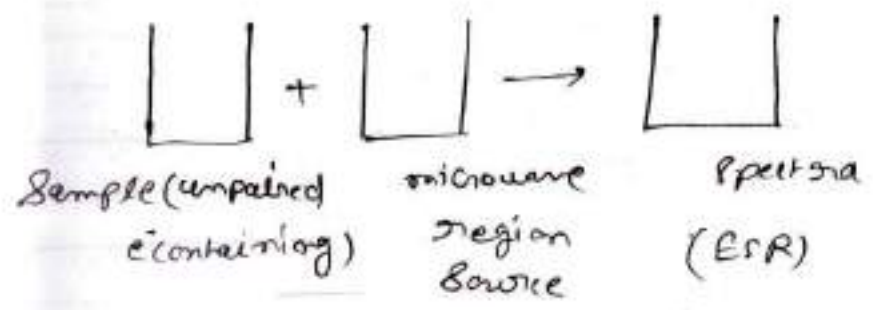 + →
Sample (unpaired e⁻ containing)
microwave region Source
Spectra (ESR)